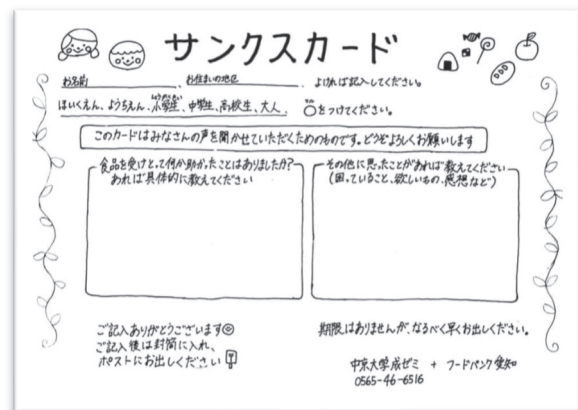 サンクスカード
お名前 、お住まいの地区 、よければ記入してください。
ほいくえん、ようちえん、小学生、中学生、高校生、大人、○をつけてください。
このカードはみなさんの声を聞かせていただくためのものです。どうぞよろしくお願いします
食品を受けとって何か助かったことはありましたか?
あれば具体的に教えてください
その他に思ったことがあれば教えてください
(困っていること、欲しいもの、感想など)
ご記入ありがとうございます☺
ご記入後は封筒に入れ、
ポストにお出しください
期限はありませんが、なるべく早くお出しください。
中京大学成ゼミ + フードバンク愛知
0565-46-6516